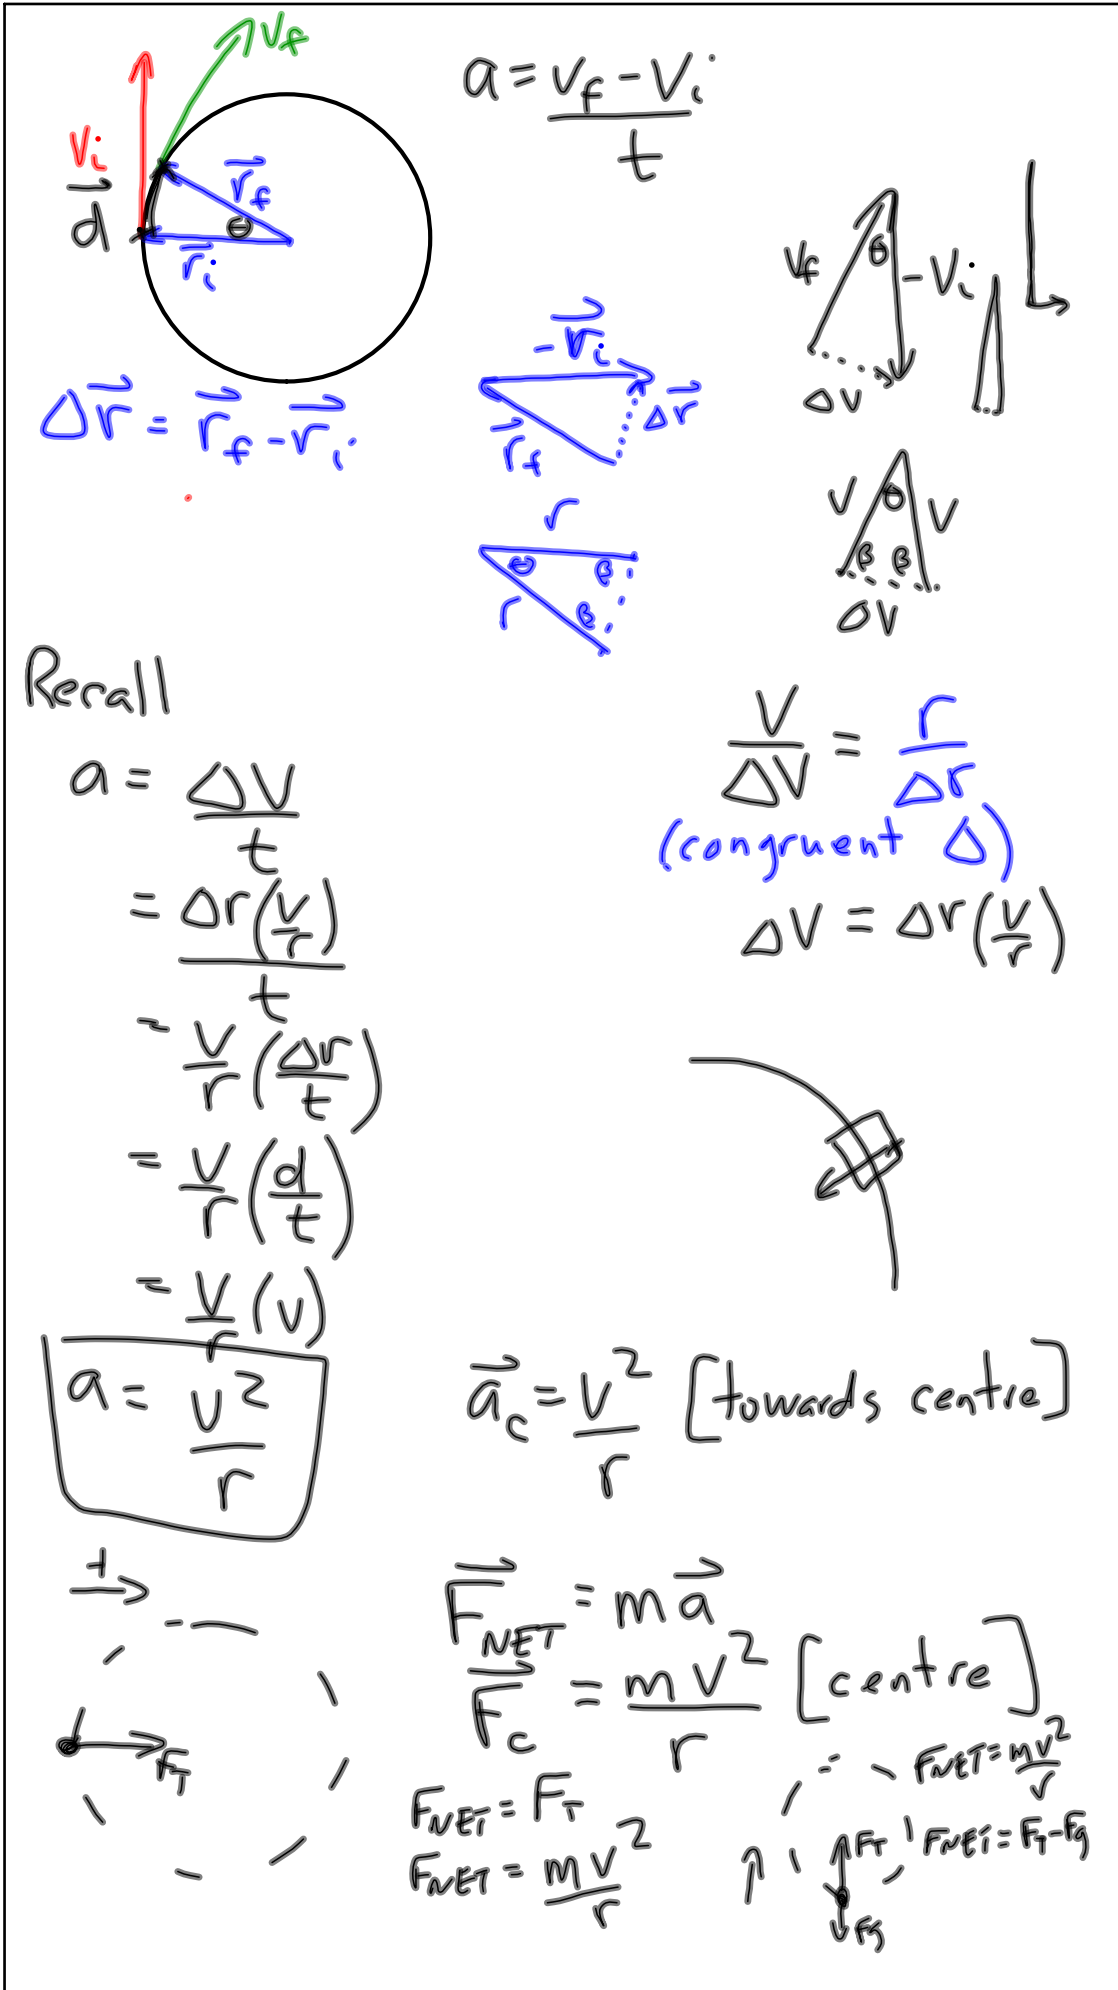 v_f
a = (v_f - v_i)/t
v_i
d⃗
r⃗_f
θ
r⃗_i
v_f
θ
-v_i
Δv
Δr⃗ = r⃗_f - r⃗_i
-r⃗_i
Δr⃗
r⃗_f
r
θ
β
β
r
v
θ
v
β
β
Δv
Recall
a = Δv/t
= Δr(v/r)/t
= v/r (Δr/t)
= v/r (d/t)
= v/r (v)
a = v²/r
v/Δv = r/Δr
(congruent Δ)
Δv = Δr(v/r)
a⃗_c = v²/r [towards centre]
+
F_T
F⃗_NET = ma⃗
F⃗_c = mv²/r [centre]
F_NET = F_T
F_NET = mv²/r
F_NET = mv²/r
F_T
F_NET = F_T - F_g
F_g